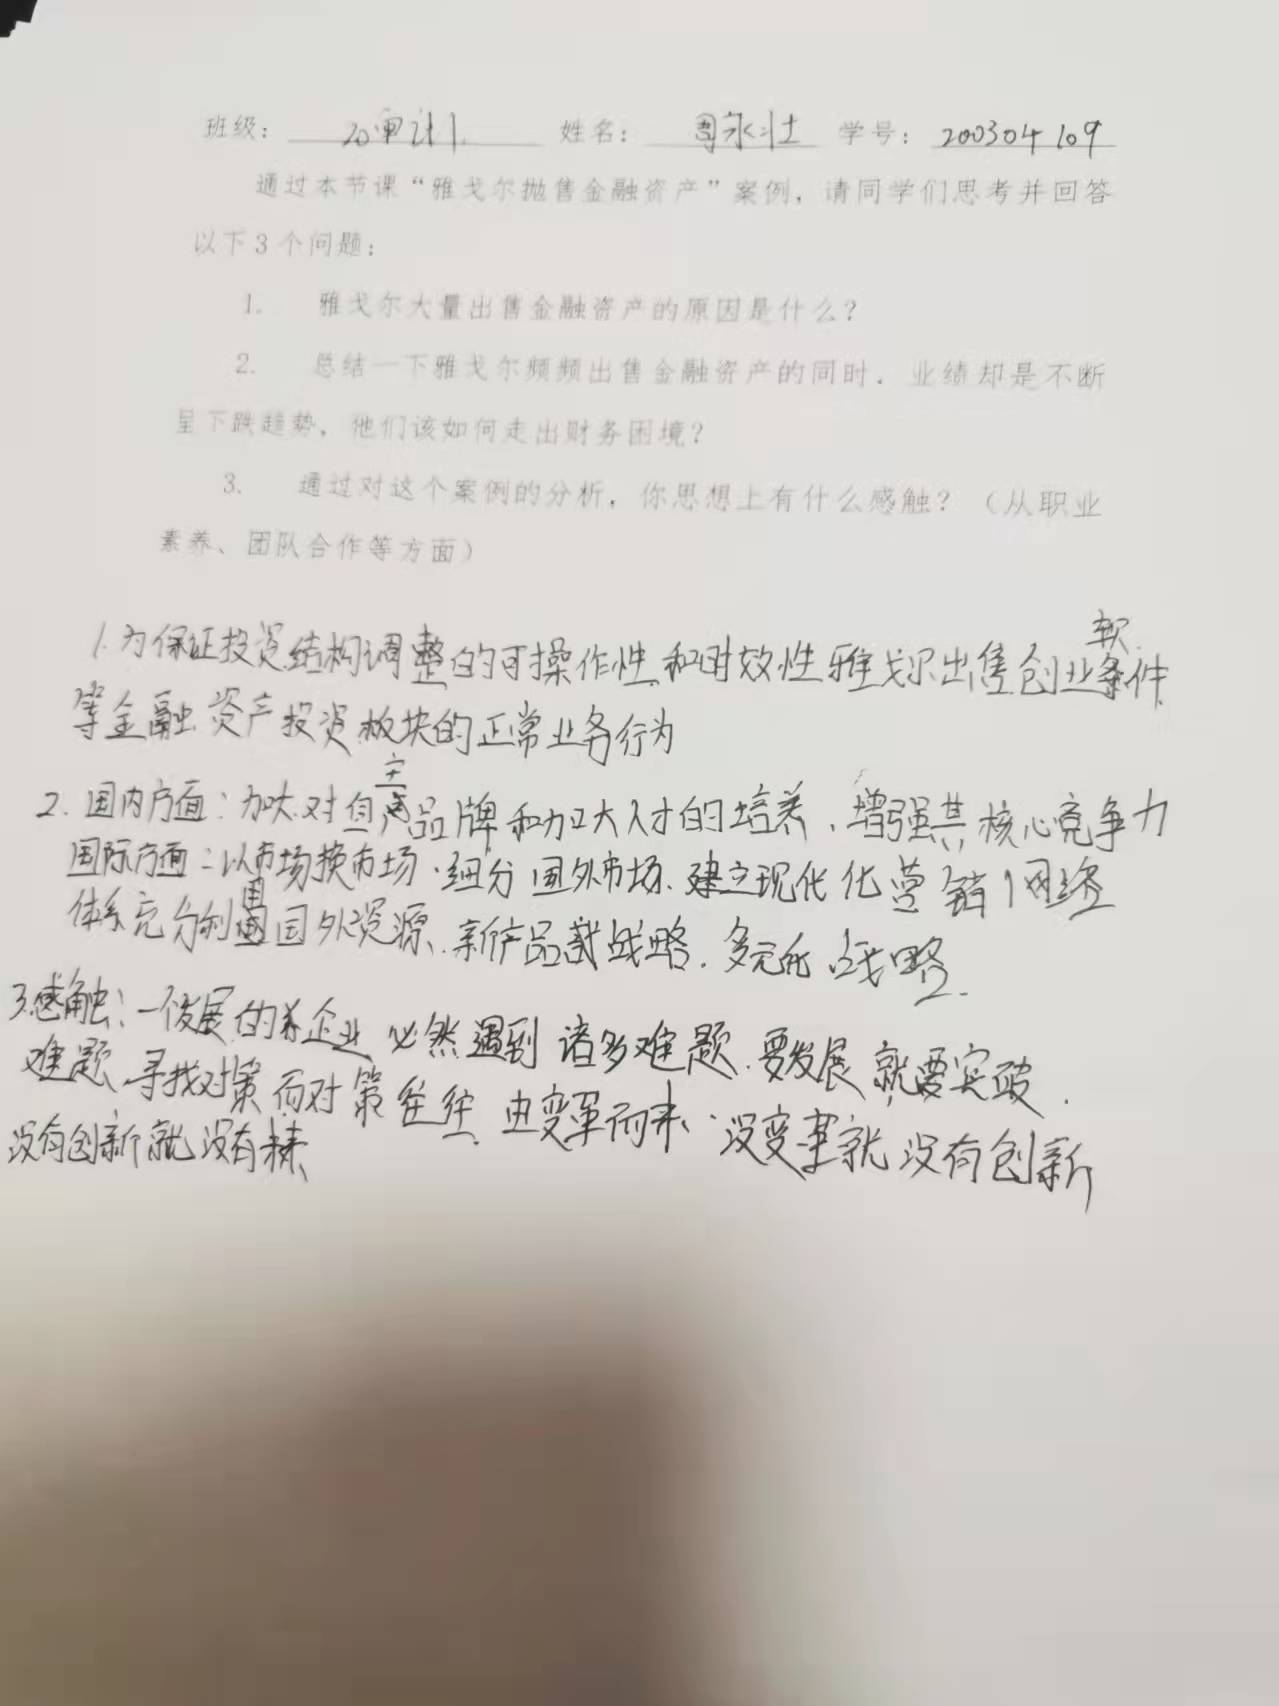 班级： 20审计1 姓名： 周永壮 学号： 200304109
通过本节课“雅戈尔抛售金融资产”案例，请同学们思考并回答
以下3个问题：
1. 雅戈尔大量出售金融资产的原因是什么？
2. 总结一下雅戈尔频频出售金融资产的同时，业绩却是不断
呈下跌趋势，他们该如何走出财务困境？
3. 通过对这个案例的分析，你思想上有什么感触？（从职业
素养、团队合作等方面）
1.为保证投资结构调整的可操作性和时效性雅戈尔出售创业软件
等金融资产投资板块的正常业务行为
2.国内方面：加大对自主品牌和加大人才的培养、增强其核心竞争力
国际方面：以市场换市场、细分国外市场、建立现代化营销网络
体系充分利用国外资源、新产品战略、多元化战略、
3.感触：一个发展的企业必然遇到诸多难题、要发展就要突破
难题、寻找对策而对策往往由变革而来、没变革就没有创新
没有创新就没有未来、